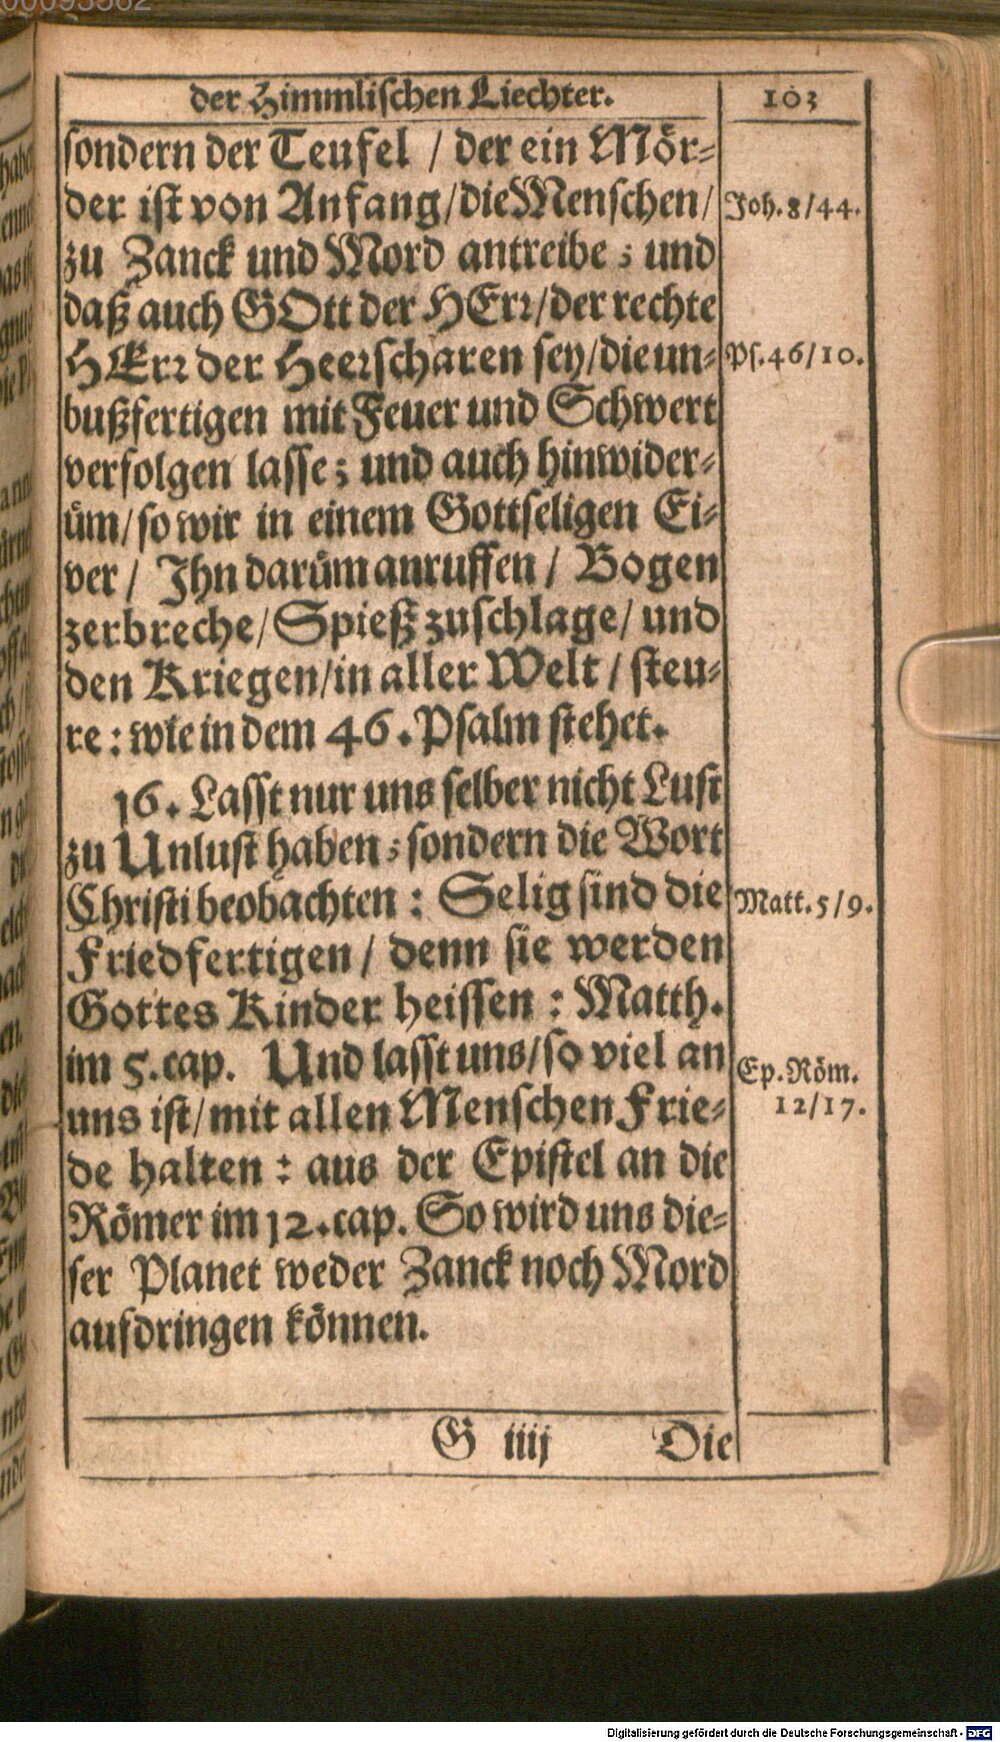 00093562
der Himmlischen Liechter. 103
sondern der Teufel / der ein Mör-
der ist von Anfang/die Menschen/
Joh. 8/44.
zu Zanck und Mord antreibe; und
daß auch GOtt der HErr/der rechte
HErr der Heerscharen sey/die un-
Ps. 46/10.
bußfertigen mit Feuer und Schwert
verfolgen lasse; und auch hinwider-
üm/so wir in einem Gottseligen Ei-
ver / Ihn darüm anruffen / Bogen
zerbreche/Spieß zuschlage/ und
den Kriegen/in aller Welt / steu-
re: wie in dem 46. Psalm stehet.
16. Lasst nur uns selber nicht Lust
zu Unlust haben; sondern die Wort
Christi beobachten: Selig sind die
Matt. 5/9.
Friedfertigen / denn sie werden
Gottes Kinder heissen: Matth.
im 5. cap. Und lasst uns/so viel an
Ep. Röm.
12/17.
uns ist/mit allen Menschen Frie-
de halten: aus der Epistel an die
Römer im 12. cap. So wird uns die-
ser Planet weder Zanck noch Mord
aufdringen können.
G iiij Die
Digitalisierung gefördert durch die Deutsche Forschungsgemeinschaft - DFG